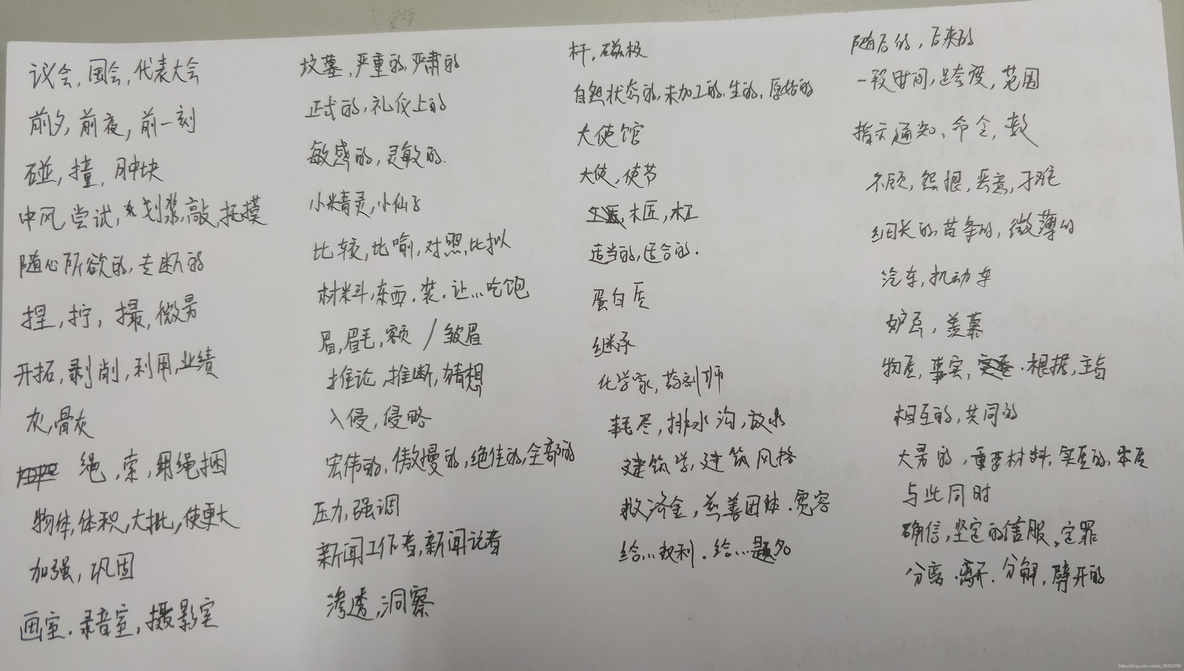 议会,国会,代表大会
前夕,前夜,前一刻
碰,撞,肿块
中风,尝试,划桨,敲,抚摸
随心所欲的,专断的
捏,拧,撮,微量
开拓,剥削,利用,业绩
灰,骨灰
绳,索,用绳捆
物体,体积,大批,使更大
加强,巩固
画室.录音室,摄影室
坟墓,严重的,严肃的
正式的,礼仪上的
敏感的,灵敏的.
小精灵,小仙子
比较,比喻,对照,比拟
材料,东西.装.让...吃饱
眉,眉毛,额/皱眉
推论,推断,猜想
入侵,侵略
宏伟的,傲慢的,绝佳的,全部的
压力,强调
新闻工作者,新闻记者
渗透,洞察
杆,磁极
自然状态的,未加工的.生的,原始的
大使馆
大使,使节
木匠,木工
适当的,适合的.
蛋白质
继承
化学家,药剂师
耗尽,排水沟,放水
建筑学,建筑风格
救济金,慈善团体.宽容
给...权利.给...题名
随后的,后来的
一段时间,跨度,范围
指示通知,命令,教
不顾,怨恨,恶意,刁难
细长的,苗条的,微薄的
汽车,机动车
妒忌,羡慕
物质,事实,根据,主旨
相互的,共同的
大量的,重要材料,实质的,本质
与此同时
确信,坚定的信服,定罪
分离.离开.分解,劈开的